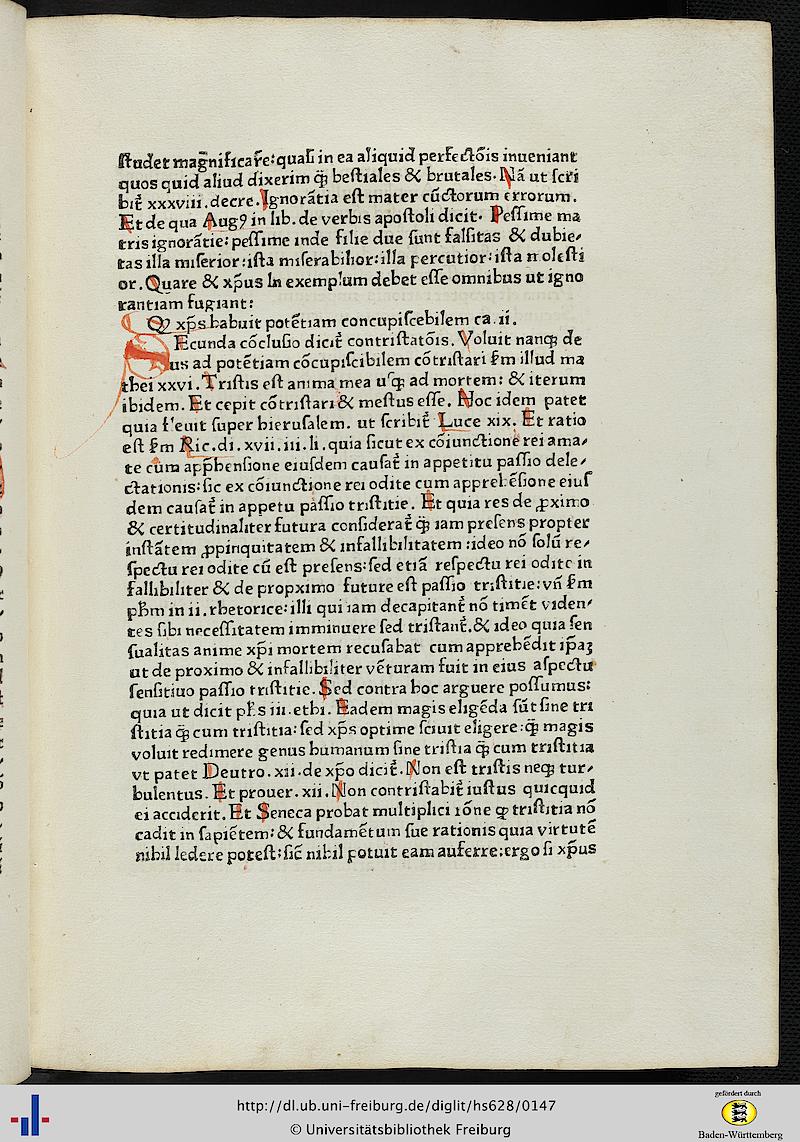 ſtudet magnificar̄e: quaſi in ea aliquid perfectōis inueniant
quos quid aliud dixerim q̄ȝ beſtiales & brutales. Nā ut ſcri
bit̄ xxxviii. decre. Ignorātia eſt mater cūctorum errorum.
Et de qua Augꝰ in lib. de verbis apoſtoli dicit. Peſſime ma
tris ignorātie: peſſime inde filie due ſunt falſitas & dubie⸗
tas illa miſerior: iſta miſerabilior: illa percutior: iſta moleſti
or. Quare & xp̄us In exemplum debet eſſe omnibus ut igno
rantiam fugiant:
Qꝫ xp̄s habuit potētiam concupiſcebilem ca. ii.
SEcunda cōcluſio dicit̄ contriſtatōis. Voluit nanqꝫ de
us ad potētiam cōcupiſcibilem cōtriſtari ẜm illud ma
thei xxvi. Triſtis eſt anima mea uſqꝫ ad mortem: & iterum
ibidem. Et cepit cōtriſtari & meſtus eſſe. Hoc idem patet
quia fleuit ſuper hieruſalem. ut ſcribit̄ Luce xix. Et ratio
eſt ẜm Ric. di. xvii. iii. li. quia ſicut ex cōiunctione rei ama⸗
te cum app̄henſione eiuſdem cauſat̄ in appetitu paſſio dele⸗
ctationis: ſic ex cōiunctione rei odite cum apprehēſione eiuſ
dem cauſat̄ in appetu paſſio triſtitie. Et quia res de ꝓximo
& certitudinaliter futura conſiderat̄ q̄ȝ iam preſens propter
inſtātem ꝓpinquitatem & infallibilitatem: ideo nō ſolū re⸗
ſpectu rei odite cū eſt preſens: ſed etiā reſpectu rei odite in
fallibiliter & de propximo future eſt paſſio triſtitie: vn̄ ẜm
ph̄m in ii. rhetorice: illi qui iam decapitant̄ nō timēt viden⸗
tes ſibi neceſſitatem imminuere ſed triſtant̄. & ideo quia ſen
ſualitas anime xp̄i mortem recuſabat cum apprehēdit ip̄aȝ
ut de proximo & infallibiliter vēturam fuit in eius aſpectu
ſenſitiuo paſſio triſtitie. Sed contra hoc arguere poſſumus:
quia ut dicit ph̄s iii. ethi. Eadem magis eligēda ſūt ſine tri
ſtitia q̄ȝ cum triſtitia: ſed xp̄s optime ſciuit eligere: q̄ȝ magis
voluit redimere genus humanum ſine triſtia q̄ȝ cum triſtitia
vt patet Deutro. xii. de xp̄o dicit̄. Non eſt triſtis neqꝫ tur⸗
bulentus. Et prouer. xii. Non contriſtabit̄ iuſtus quicquid
ei acciderit. Et Seneca probat multiplici rōne ꝙ triſtitia nō
cadit in ſapiētem: & fundamētum ſue rationis quia virtutē
nihil ledere poteſt: ſic̄ nihil potuit eam auferre: ergo ſi xp̄us
http://dl.ub.uni-freiburg.de/diglit/hs628/0147
© Universitätsbibliothek Freiburg
gefördert durch
Baden-Württemberg